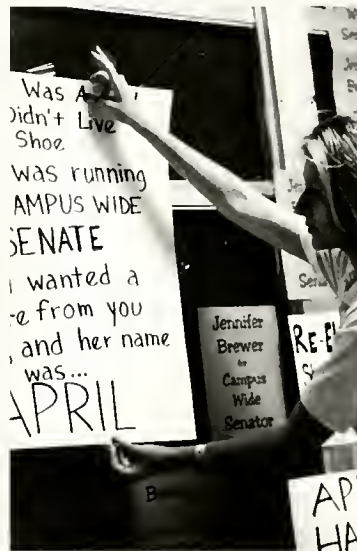 Was A
Didn't Live
Shoe
was running
AMPUS WIDE
SENATE
I wanted a
e from you
, and her name
was...
APRIL
Jennifer
Brewer
for
Campus
Wide
Senator
RE-E
B
AP
HA